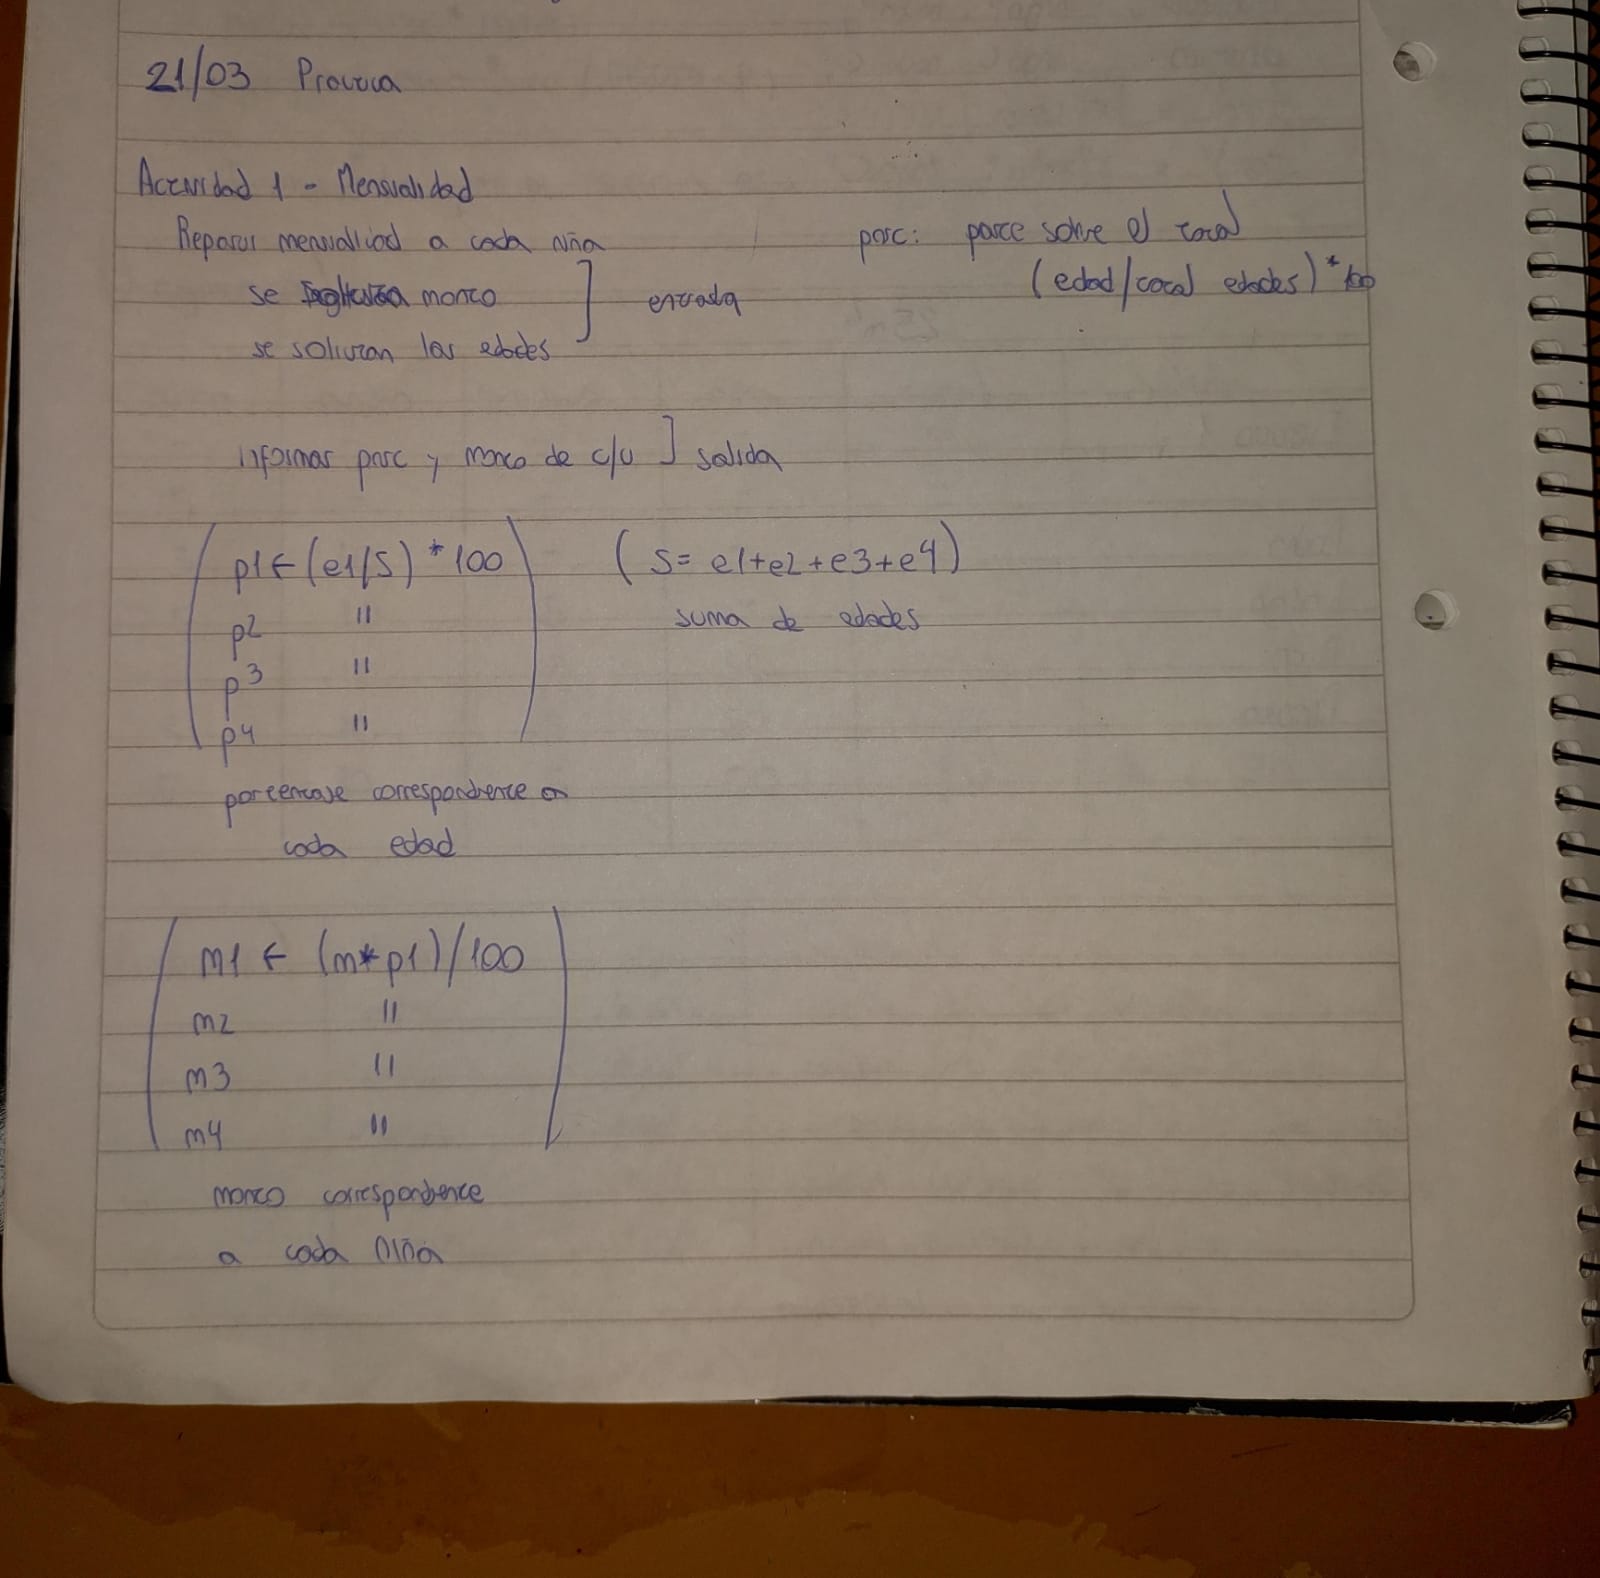 21/03 Práctica
Actividad 1 - Mensualidad
Repartir mensualidad a cada niña
se monto
se solicitan las edades
] entrada
porc: parte sobre el total
(edad/total edades) * 100
informar porc y monto de c/u ] salida
p1 ← (e1/S) * 100
p2 "
p3 "
p4 "
(S= e1+e2+e3+e4)
suma de edades
porcentaje correspondiente a
cada edad
m1 ← (m*p1)/100
m2 "
m3 "
m4 "
monto correspondiente
a cada niña